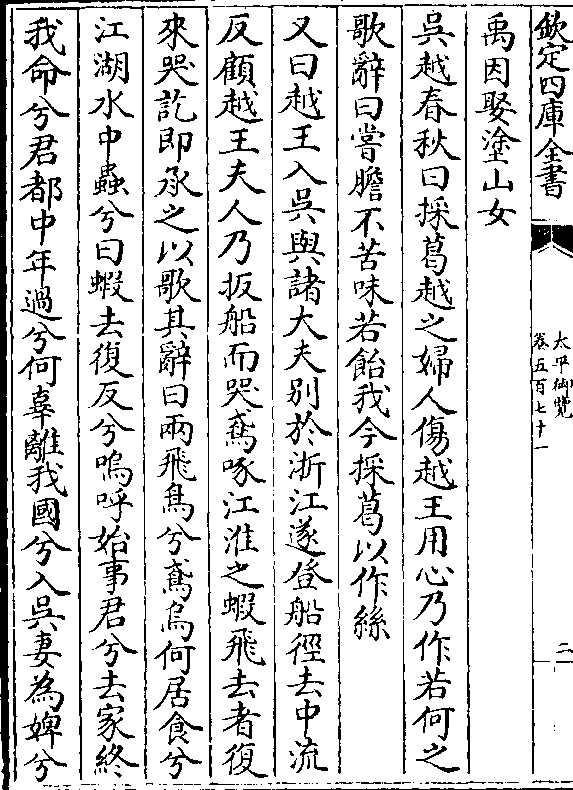 欽定四庫全書
太平御覽
卷五百七十一
二
禹因娶塗山女
吳越春秋曰採葛越之婦人傷越王用心乃作若何之
歌辭曰嘗膽不苦味若飴我今採葛以作絲
又曰越王入吳與諸大夫別於浙江遂登船徑去中流
反顧越王夫人乃扳船而哭鳶啄江淮之蝦飛去者復
來哭訖即承之以歌其辭曰兩飛鳥兮鳶烏何居食兮
江湖水中蟲兮曰蝦去復反兮嗚呼始事君兮去家終
我命兮君都中年過兮何辜離我國兮入吳妻為婢兮